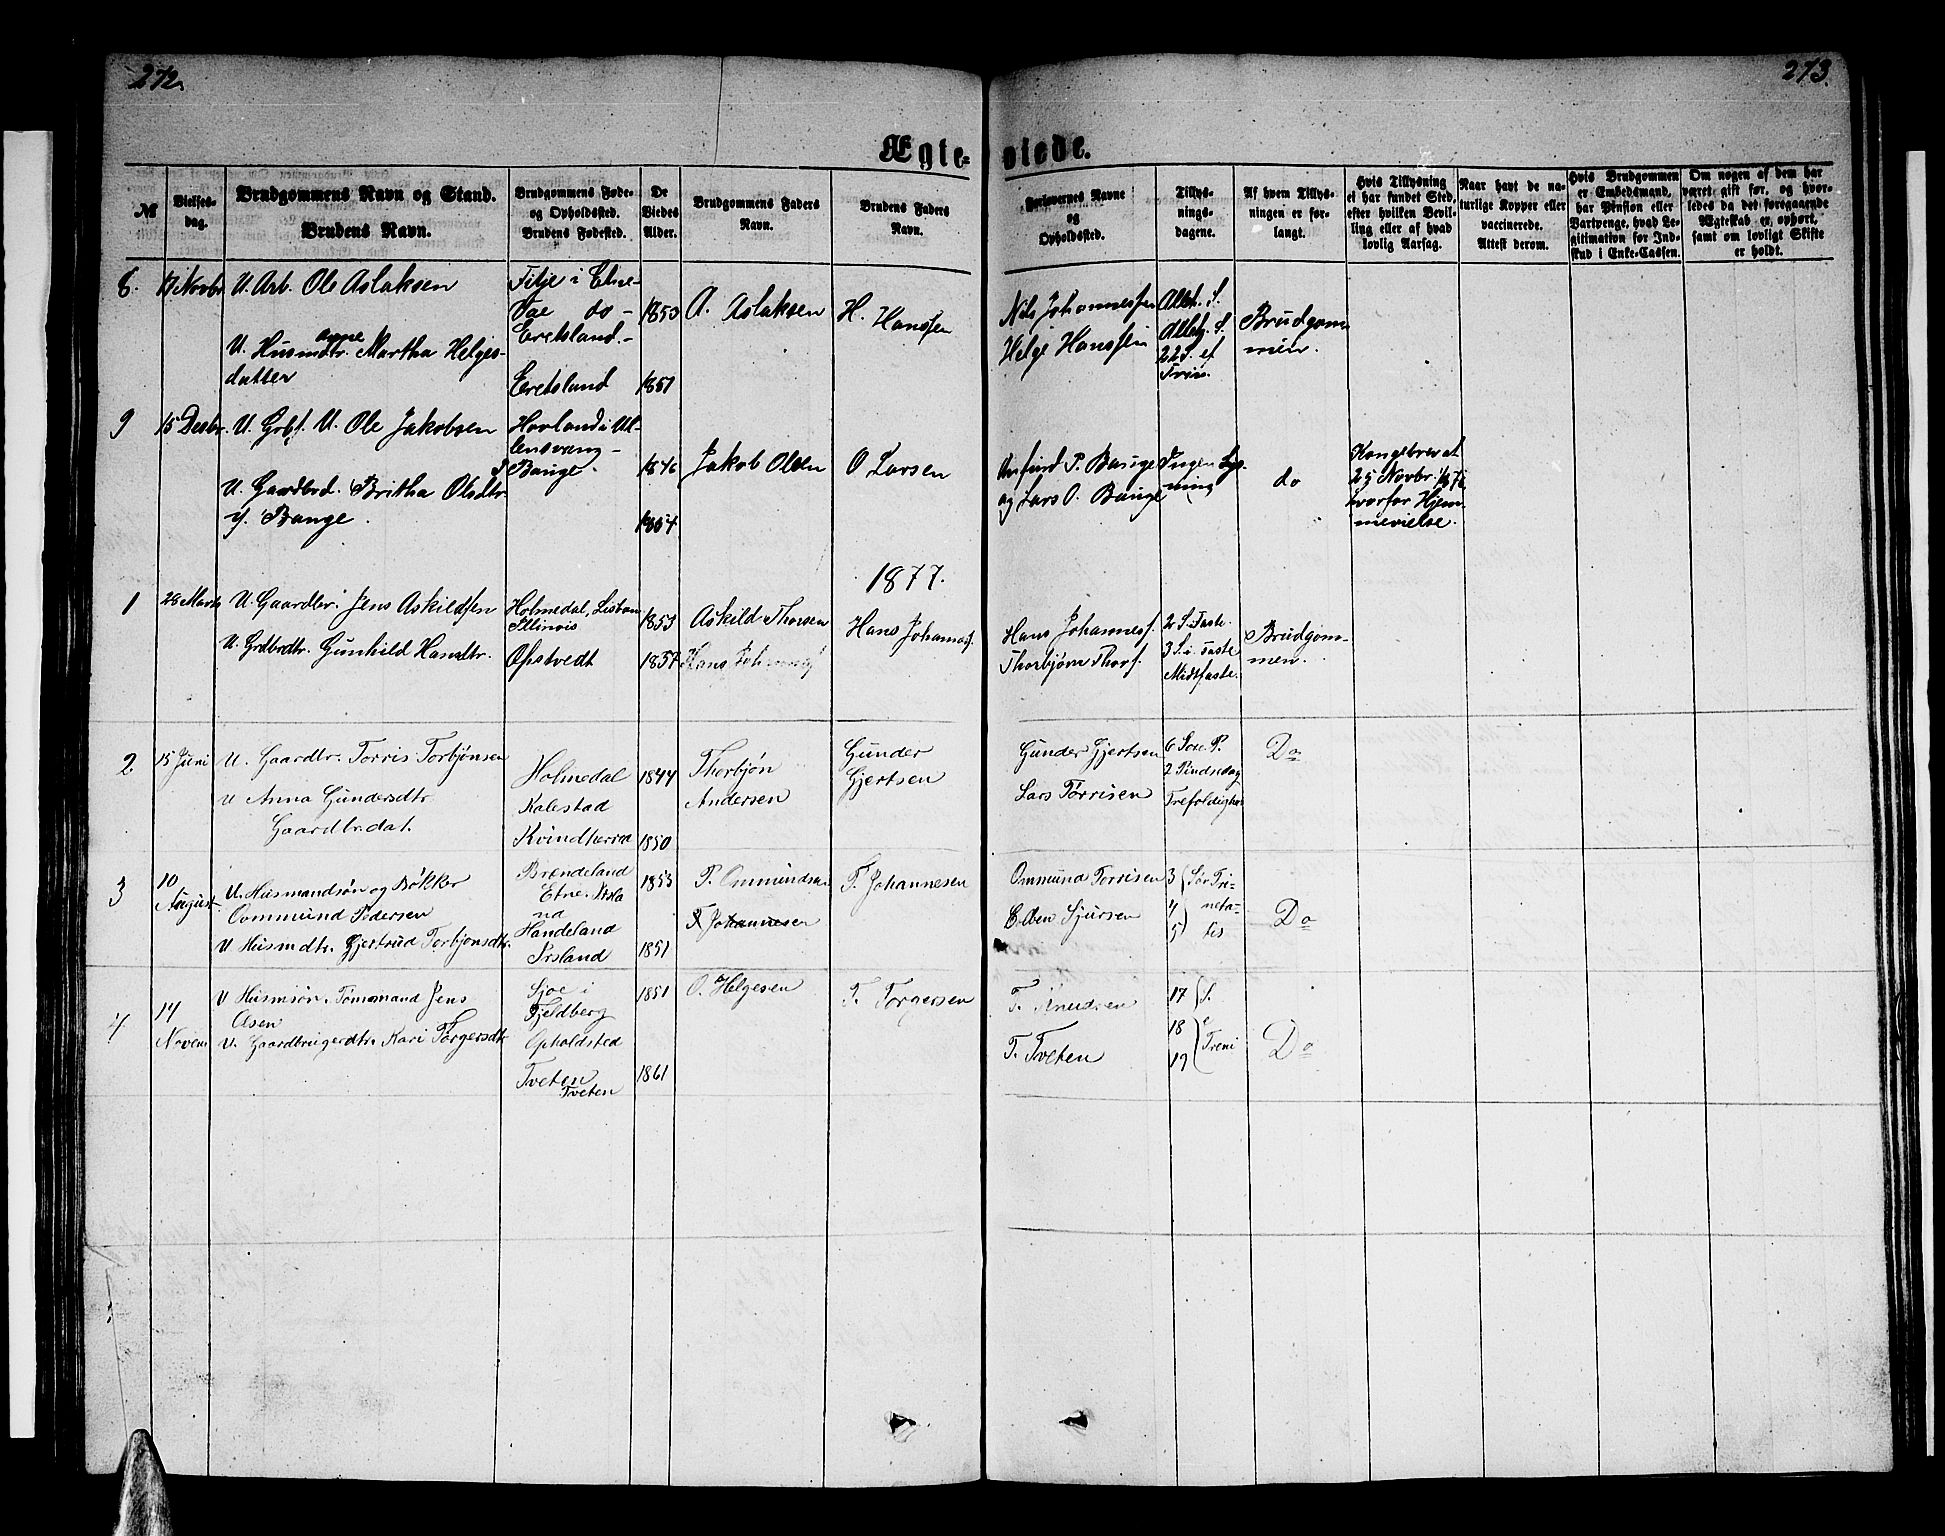 272.
273.
Ægte-
viede.
№
Vielses-
dag.
Brudgommens Navn og Stand.
Brudens Navn.
Brudgommens Føde-
og Opholdssted.
Brudens Fødested.
De
Viedes
Alder.
Brudgommens Faders
Navn.
Brudens Faders
Navn.
Forlovernes Navne
og
Opholdssted.
Tillys-
nings-
dagene.
Af hvem Tillys-
ningen er for-
langt.
Hvis Tillysning
ei har fundet Sted,
efter hvilken Bevil-
ling eller af hvad
lovlig Aarsag.
Naar havt de na-
turlige Kopper eller
vaccinerede.
Attest derom.
Hvis Brudgommen
er Embedsmand,
har Pension eller
Vartpenge, hvad Le-
gitimation for Ind-
skud i Enke-Cassen.
Om nogen af dem har
været gift før, og hvor-
ledes da det foregaaende
Ægteskab er ophørt,
samt om lovligt Skifte
er holdt.
Novbr.
U. Arb. Ole Aslaksen
U. Husmdtr. Anne Martha Helges-
datter
i Etne
do -
Eretsland.-
Eretsland
1853
1851
A. Aslaksen
H. Hansen
Nils Johannessen
Helge Hanssen
Brudgom-
men.
9
15 Decbr.
U. Grbf. U. Ole Jakobsen
U. Gaardbrd. Britha Olsdtr.
Bauge.
Hovland i Ul-
lensvang -
Bauge.
1846
1854
Jakob Olsen
O Larsen
P. Bauge
og Lars O. Bauge
Ingen Lys-
ning
do
Kongebrev af
Novbr.
hvorfor Hjem-
mevielse.
1877.
1
28 Marts
U. Gaardbr. Jens Askildsen
U. Grdbrdtr. Gunhild Hansdtr.
Holmedal, Lisbon
Illinois
Opstvedt
1853
1857
Askild Thorsen
Hans Johannesf.
Hans Johannesf.
Thorbjørn Thorsf.
2 S. i Faste
3 S. i Faste
Midtfaste.
Brudgom-
men.
2
15 Juni
U. Gaardbr. Torris Torbjønsen
U Anna Gundersdtr
Gaardbrdat.
Holmedal
Kalestad
Kvindherred
1844
1850
Thorbjøn
Andersen
Gunder
Gjertsen
Gunder Gjertsen
Lars Torrisen
2 Pindsedag
Trefoldighed
Do
3
10
August
U. Husmandsøn og Bøkker
Ommund Pedersen
U Husmdtr. Gjertrud Torbjønsdtr.
Brendeland
Etne.
Handeland
1853
1851
P. Ommundsen
T. Johannesen
T. Johannesen
Ommund Torrisen
Sjursen
3
4
5
Do
4
14
Novem
U Husmsøn. Tømmand Jens
Olsen
U. Gaardbrugerdtr. Kari Torgersdtr
Sjoe i
Fjeldberg
Opholdsted
Tveten
Tveten
1851
1861
O. Helgesen
T. Torgersen
T. Knudsen
T. Tveten
17
18
19
S.
e
Treni
Do